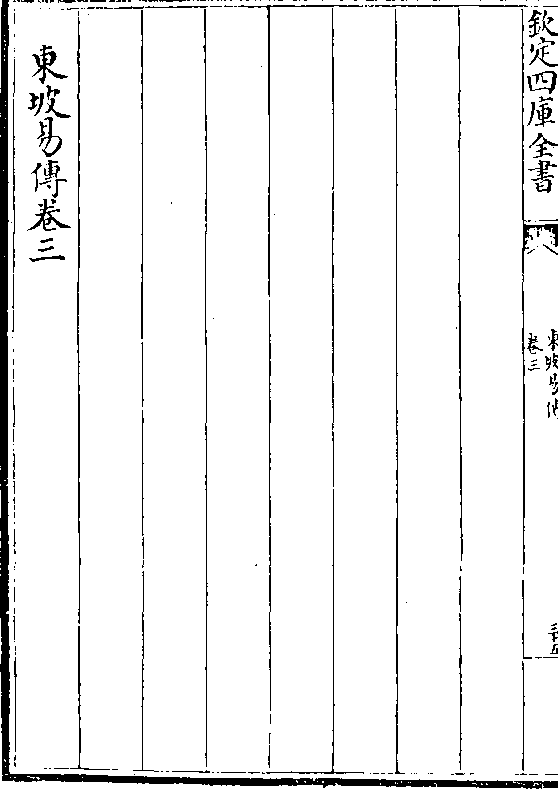 欽定四庫全書
東坡易傳
卷三
東坡易傳卷三